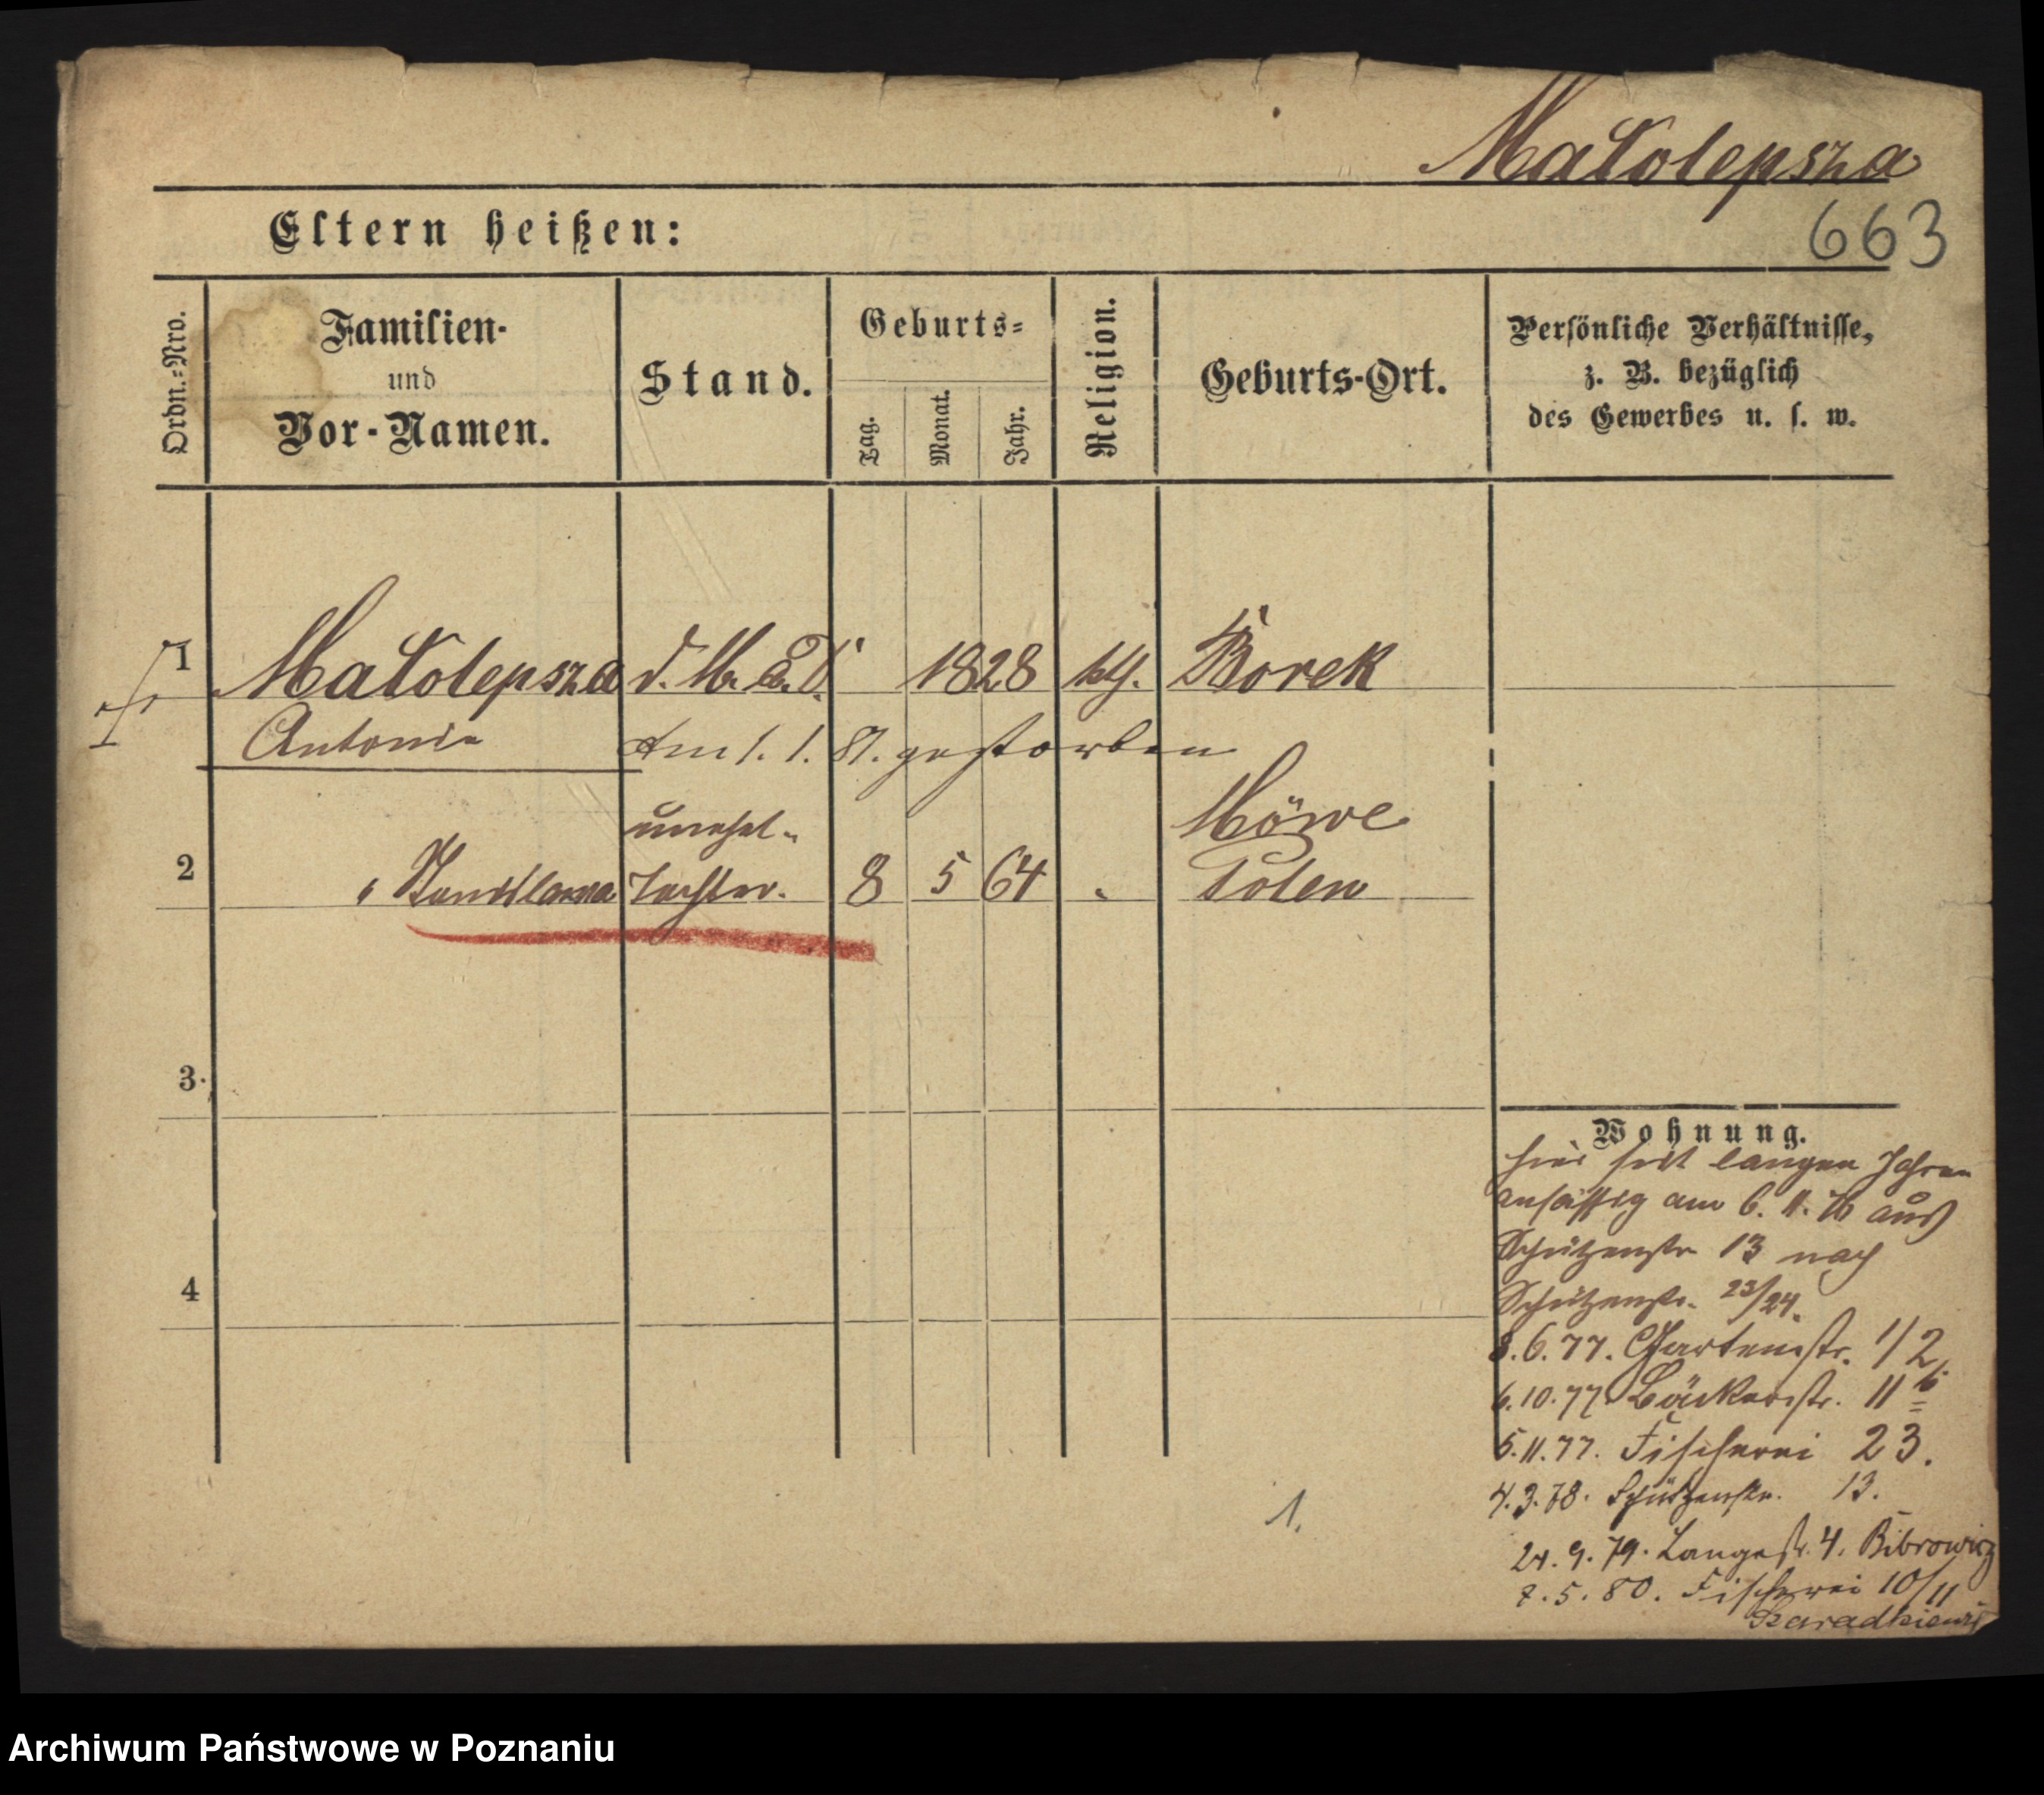 Małolepsza
663
Eltern heißen:
Ordn.-Nro.
Familien-
und
Vor-Namen.
Stand.
Geburts-
Tag.
Monat.
Jahr.
Religion.
Geburts-Ort.
Persönliche Verhältnisse,
z. B. bezüglich
des Gewerbes u. s. w.
1 Małolepsza 1828 kth. Borek
Antonie am 1. 1. 81. gestorben
unehel.
2 " Tochter. 8 5 64 " Polen
3
4
Wohnung.
hier seit langen Jahren
ansässig am 6. 11. 76 aus
Schützenstr 13 nach
Schützenstr. 23/24.
8.6.77. Gartenstr. 1/2.
6.10.77 Bäckerstr. 11b
5.11.77. Fischerei 23.
4.3.78. Schützenstr. 13.
24.9.79. Langestr. 4. Bibrowicz
7.5.80. Fischerei 10/11
1.
Archiwum Państwowe w Poznaniu